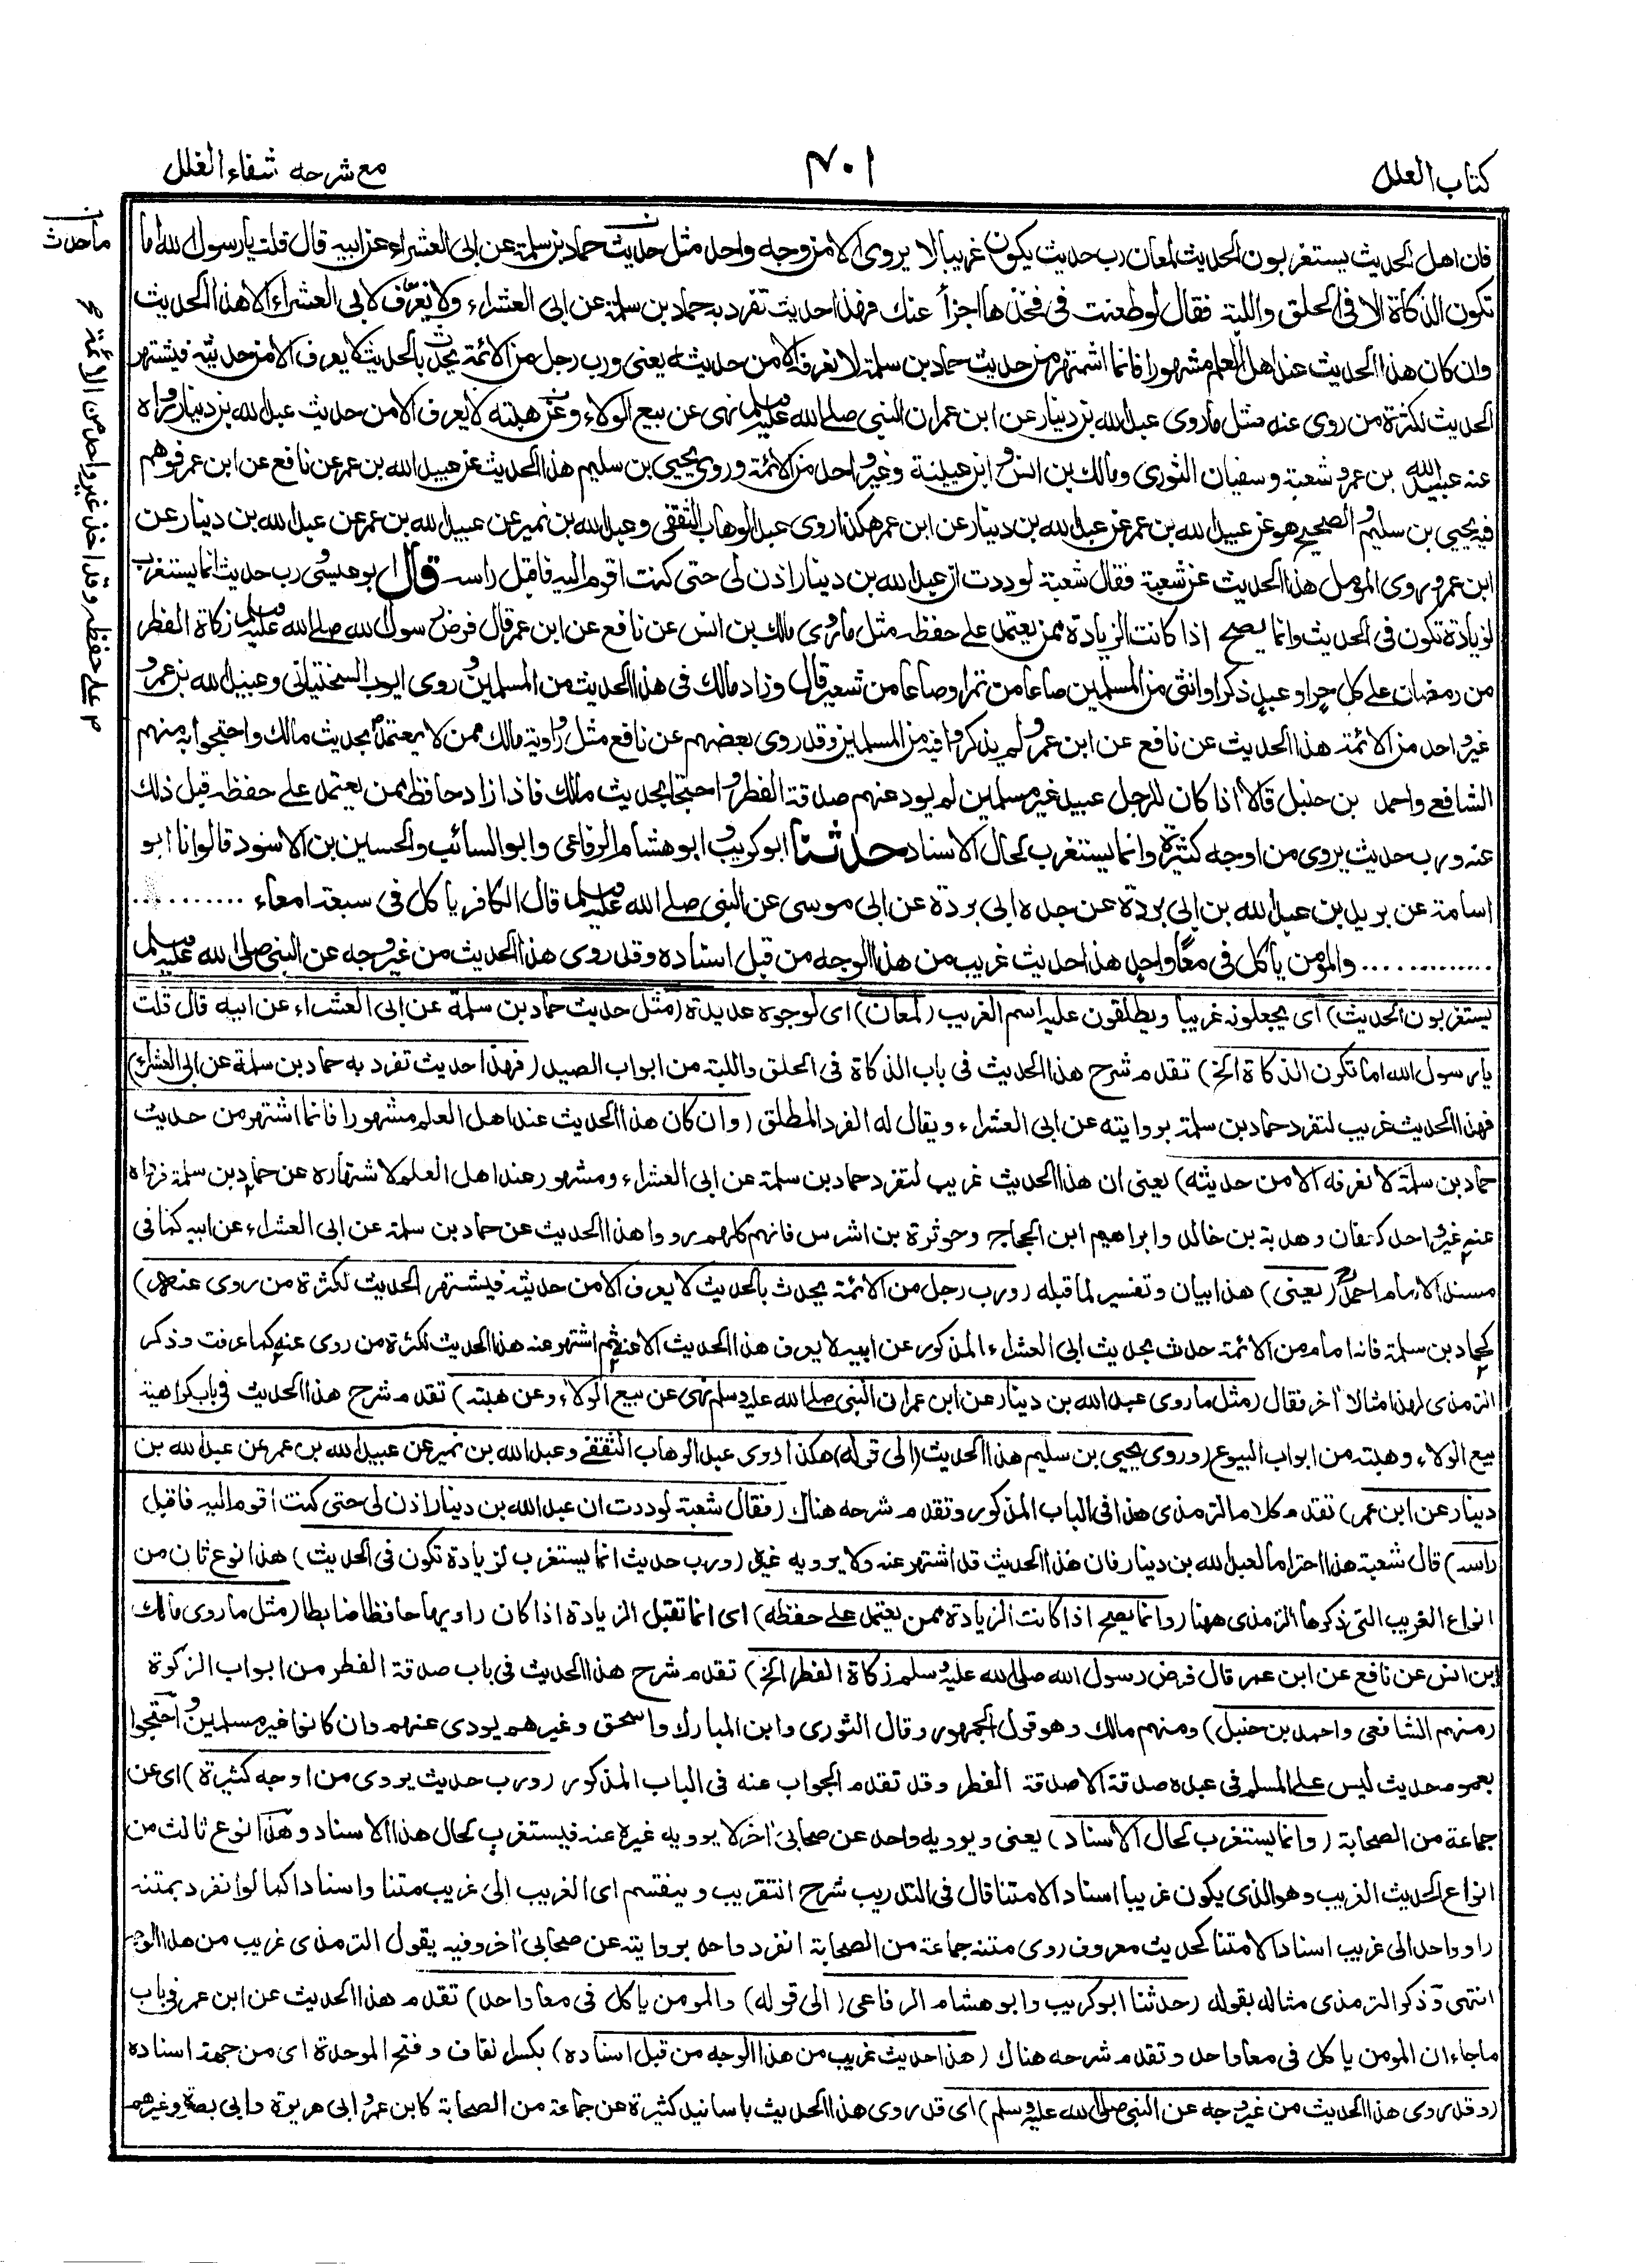 كتاب العلل
٤٠١
مع شرحه شفاء الغلل
فان اهل الحديث يستغربون الحديث لمعان رب حديث يكون غريبا لا يروى الا من وجه واحد مثل حديث حماد بن سلمة عن ابى العشراء عن ابيه قال قلت يا رسول الله اما
تكون الذكاة الا فى الحلق واللبة فقال لو طعنت فى فخذها اجزأ عنك فهذا حديث تفرد به حماد بن سلمة عن ابى العشراء ولا يُعرف لابى العشراء الا هذا الحديث
وان كان هذا الحديث عند اهل العلم مشهورا فانما اشتهر من حديث حماد بن سلمة لا نعرفه الا من حديثه يعنى ورب رجل من الائمة يحدث بالحديث لا يعرف الا من حديثه فيشتهر
الحديث لكثرة من روى عنه مثل ما روى عبد الله بن دينار عن ابن عمر ان النبى صلى الله عليه وسلم نهى عن بيع الولاء وعن هبته لا يعرف الا من حديث عبد الله بن دينار رواه
عنه عبيد الله بن عمر وشعبة وسفيان الثورى ومالك بن انس وابن عيينة وغير واحد من الائمة وروى يحيى بن سليم هذا الحديث عن عبيد الله بن عمر عن نافع عن ابن عمر فوهم
فيه يحيى بن سليم والصحيح هو عن عبيد الله بن عمر عن عبد الله بن دينار عن ابن عمر هكذا روى عبد الوهاب الثقفى وعبد الله بن نمير عن عبيد الله بن عمر عن عبد الله بن دينار عن
ابن عمر وروى المؤمل هذا الحديث عن شعبة فقال شعبة لوددت ان عبد الله بن دينار اذن لى حتى كنت اقوم اليه فاقبل راسه قال ابو عيسى رب حديث انما يستغرب
لزيادة تكون فى الحديث وانما يصح اذا كانت الزيادة ممن يعتمد على حفظه مثل ما روى مالك بن انس عن نافع عن ابن عمر قال فرض رسول الله صلى الله عليه وسلم زكاة الفطر
من رمضان على كل حر او عبد ذكر او انثى من المسلمين صاعا من تمر او صاعا من شعير قال وزاد مالك فى هذا الحديث من المسلمين وروى ايوب السختيانى وعبيد الله بن عمر و
غير واحد من الائمة هذا الحديث عن نافع عن ابن عمر ولم يذكروا فيه من المسلمين وقد روى بعضهم عن نافع مثل رواية مالك ممن لا يعتمد بحديث مالك واحتجوا به منهم
الشافعى واحمد بن حنبل قالا اذا كان للرجل عبيد غير مسلمين لم يود عنهم صدقة الفطر واحتجا بحديث مالك فاذا زاد حافظ ممن يعتمد على حفظه قبل ذلك
عنه ورب حديث يروى من اوجه كثيرة وانما يستغرب لحال الاسناد حدثنا ابو كريب وابو هشام الرفاعى وابو السائب والحسين بن الاسود قالوا نا ابو
اسامة عن بريد بن عبد الله بن ابى بردة عن جده ابى بردة عن ابى موسى عن النبى صلى الله عليه وسلم قال الكافر ياكل فى سبعة امعاء ..........
............. والمؤمن ياكل فى معًا واحد هذا حديث غريب من هذا الوجه من قبل اسناده وقد روى هذا الحديث من غير وجه عن النبى صلى الله عليه وسلم
يستغربون الحديث) اى يجعلونه غريبا ويطلقون عليه اسم الغريب (لمعان) اى لوجوه عديدة (مثل حديث حماد بن سلمة عن ابى العشراء عن ابيه قال قلت
يا رسول الله اما تكون الذكاة الخ) تقدم شرح هذا الحديث فى باب الذكاة فى الحلق واللبة من ابواب الصيد (فهذا حديث تفرد به حماد بن سلمة عن ابى العشراء)
فهذا الحديث غريب لتفرد حماد بن سلمة بروايته عن ابى العشراء ويقال له الفرد المطلق (وان كان هذا الحديث عند اهل العلم مشهورا فانما اشتهر من حديث
حماد بن سلمة لا نعرفه الا من حديثه) يعنى ان هذا الحديث غريب لتفرد حماد بن سلمة عن ابى العشراء ومشهور عند اهل العلم لاشتهاره عن حماد بن سلمة فرواه
عنه غير واحد كعفان وهدبة بن خالد وابراهيم ابن الحجاج وحوثرة بن اشرس فانهم كلهم رووا هذا الحديث عن حماد بن سلمة عن ابى العشراء عن ابيه كما فى
مسند الامام احمد (يعنى) هذا بيان وتفسير لما قبله (ورب رجل من الائمة يحدث بالحديث لا يعرف الا من حديثه فيشتهر الحديث لكثرة من روى عنه)
كحماد بن سلمة فانه امام من الائمة حدث بحديث ابى العشراء المذكور عن ابيه لا يعرف هذا الحديث الا عنه ثم اشتهر عنه هذا الحديث لكثرة من روى عنه كما عرفت وذكر
الترمذى لهذا مثالا آخر فقال (مثل ما روى عبد الله بن دينار عن ابن عمر ان النبى صلى الله عليه وسلم نهى عن بيع الولاء وعن هبته) تقدم شرح هذا الحديث فى باب كراهية
بيع الولاء وهبته من ابواب البيوع (وروى يحيى بن سليم هذا الحديث (الى قوله) هكذا روى عبد الوهاب الثقفى وعبد الله بن نمير عن عبيد الله بن عمر عن عبد الله بن
دينار عن ابن عمر) تقدم كلام الترمذى هذا فى الباب المذكور وتقدم شرحه هناك (فقال شعبة لوددت ان عبد الله بن دينار اذن لى حتى كنت اقوم اليه فاقبل
راسه) قال شعبة هذا احتراما لعبد الله بن دينار فان هذا الحديث قد اشتهر عنه ولا يرويه غيره (ورب حديث انما يستغرب لزيادة تكون فى الحديث) هذا نوع ثان من
انواع الغريب التى ذكرها الترمذى ههنا (وانما يصح اذا كانت الزيادة ممن يعتمد على حفظه) اى انما تقبل الزيادة اذا كان راويها حافظا ضابطا (مثل ما روى مالك
ابن انس عن نافع عن ابن عمر قال فرض رسول الله صلى الله عليه وسلم زكاة الفطر الخ) تقدم شرح هذا الحديث فى باب صدقة الفطر من ابواب الزكوة
(منهم الشافعى واحمد بن حنبل) ومنهم مالك وهو قول الجمهور وقال الثورى وابن المبارك واسحق وغيرهم يودى عنهم وان كانوا غير مسلمين واحتجوا
بعموم حديث ليس على المسلم فى عبده صدقة الا صدقة الفطر وقد تقدم الجواب عنه فى الباب المذكور (ورب حديث يروى من اوجه كثيرة) اى عن
جماعة من الصحابة (وانما يستغرب لحال الاسناد) يعنى ويرويه واحد عن صحابى آخر لا يرويه غيره عنه فيستغرب لحال هذا الاسناد وهذا نوع ثالث من
انواع الحديث الغريب وهو الذى يكون غريبا اسنادا لا متنا قال فى التدريب شرح التقريب وينقسم اى الغريب الى غريب متنا واسنادا كما لو انفرد بمتنه
راو واحد الى غريب اسنادا لا متنا كحديث معروف روى متنه جماعة من الصحابة انفرد واحد بروايته عن صحابى آخر وفيه يقول الترمذى غريب من هذا الوجه
انتهى وذكر الترمذى مثاله بقوله (حدثنا ابو كريب وابو هشام الرفاعى (الى قوله) والمومن ياكل فى معا واحد) تقدم هذا الحديث عن ابن عمر فى باب
ما جاء ان المومن ياكل فى معا واحد وتقدم شرحه هناك (هذا حديث غريب من هذا الوجه من قبل اسناده) بكسر القاف وفتح الموحدة اى من جهة اسناده
(وقد روى هذا الحديث من غير وجه عن النبى صلى الله عليه وسلم) اى قد روى هذا الحديث باسانيد كثيرة عن جماعة من الصحابة كابن عمر وابى هريرة وابى بصرة وغيرهم
ما حدث
م على حفظه وقد اخذ غير واحد من الائمة